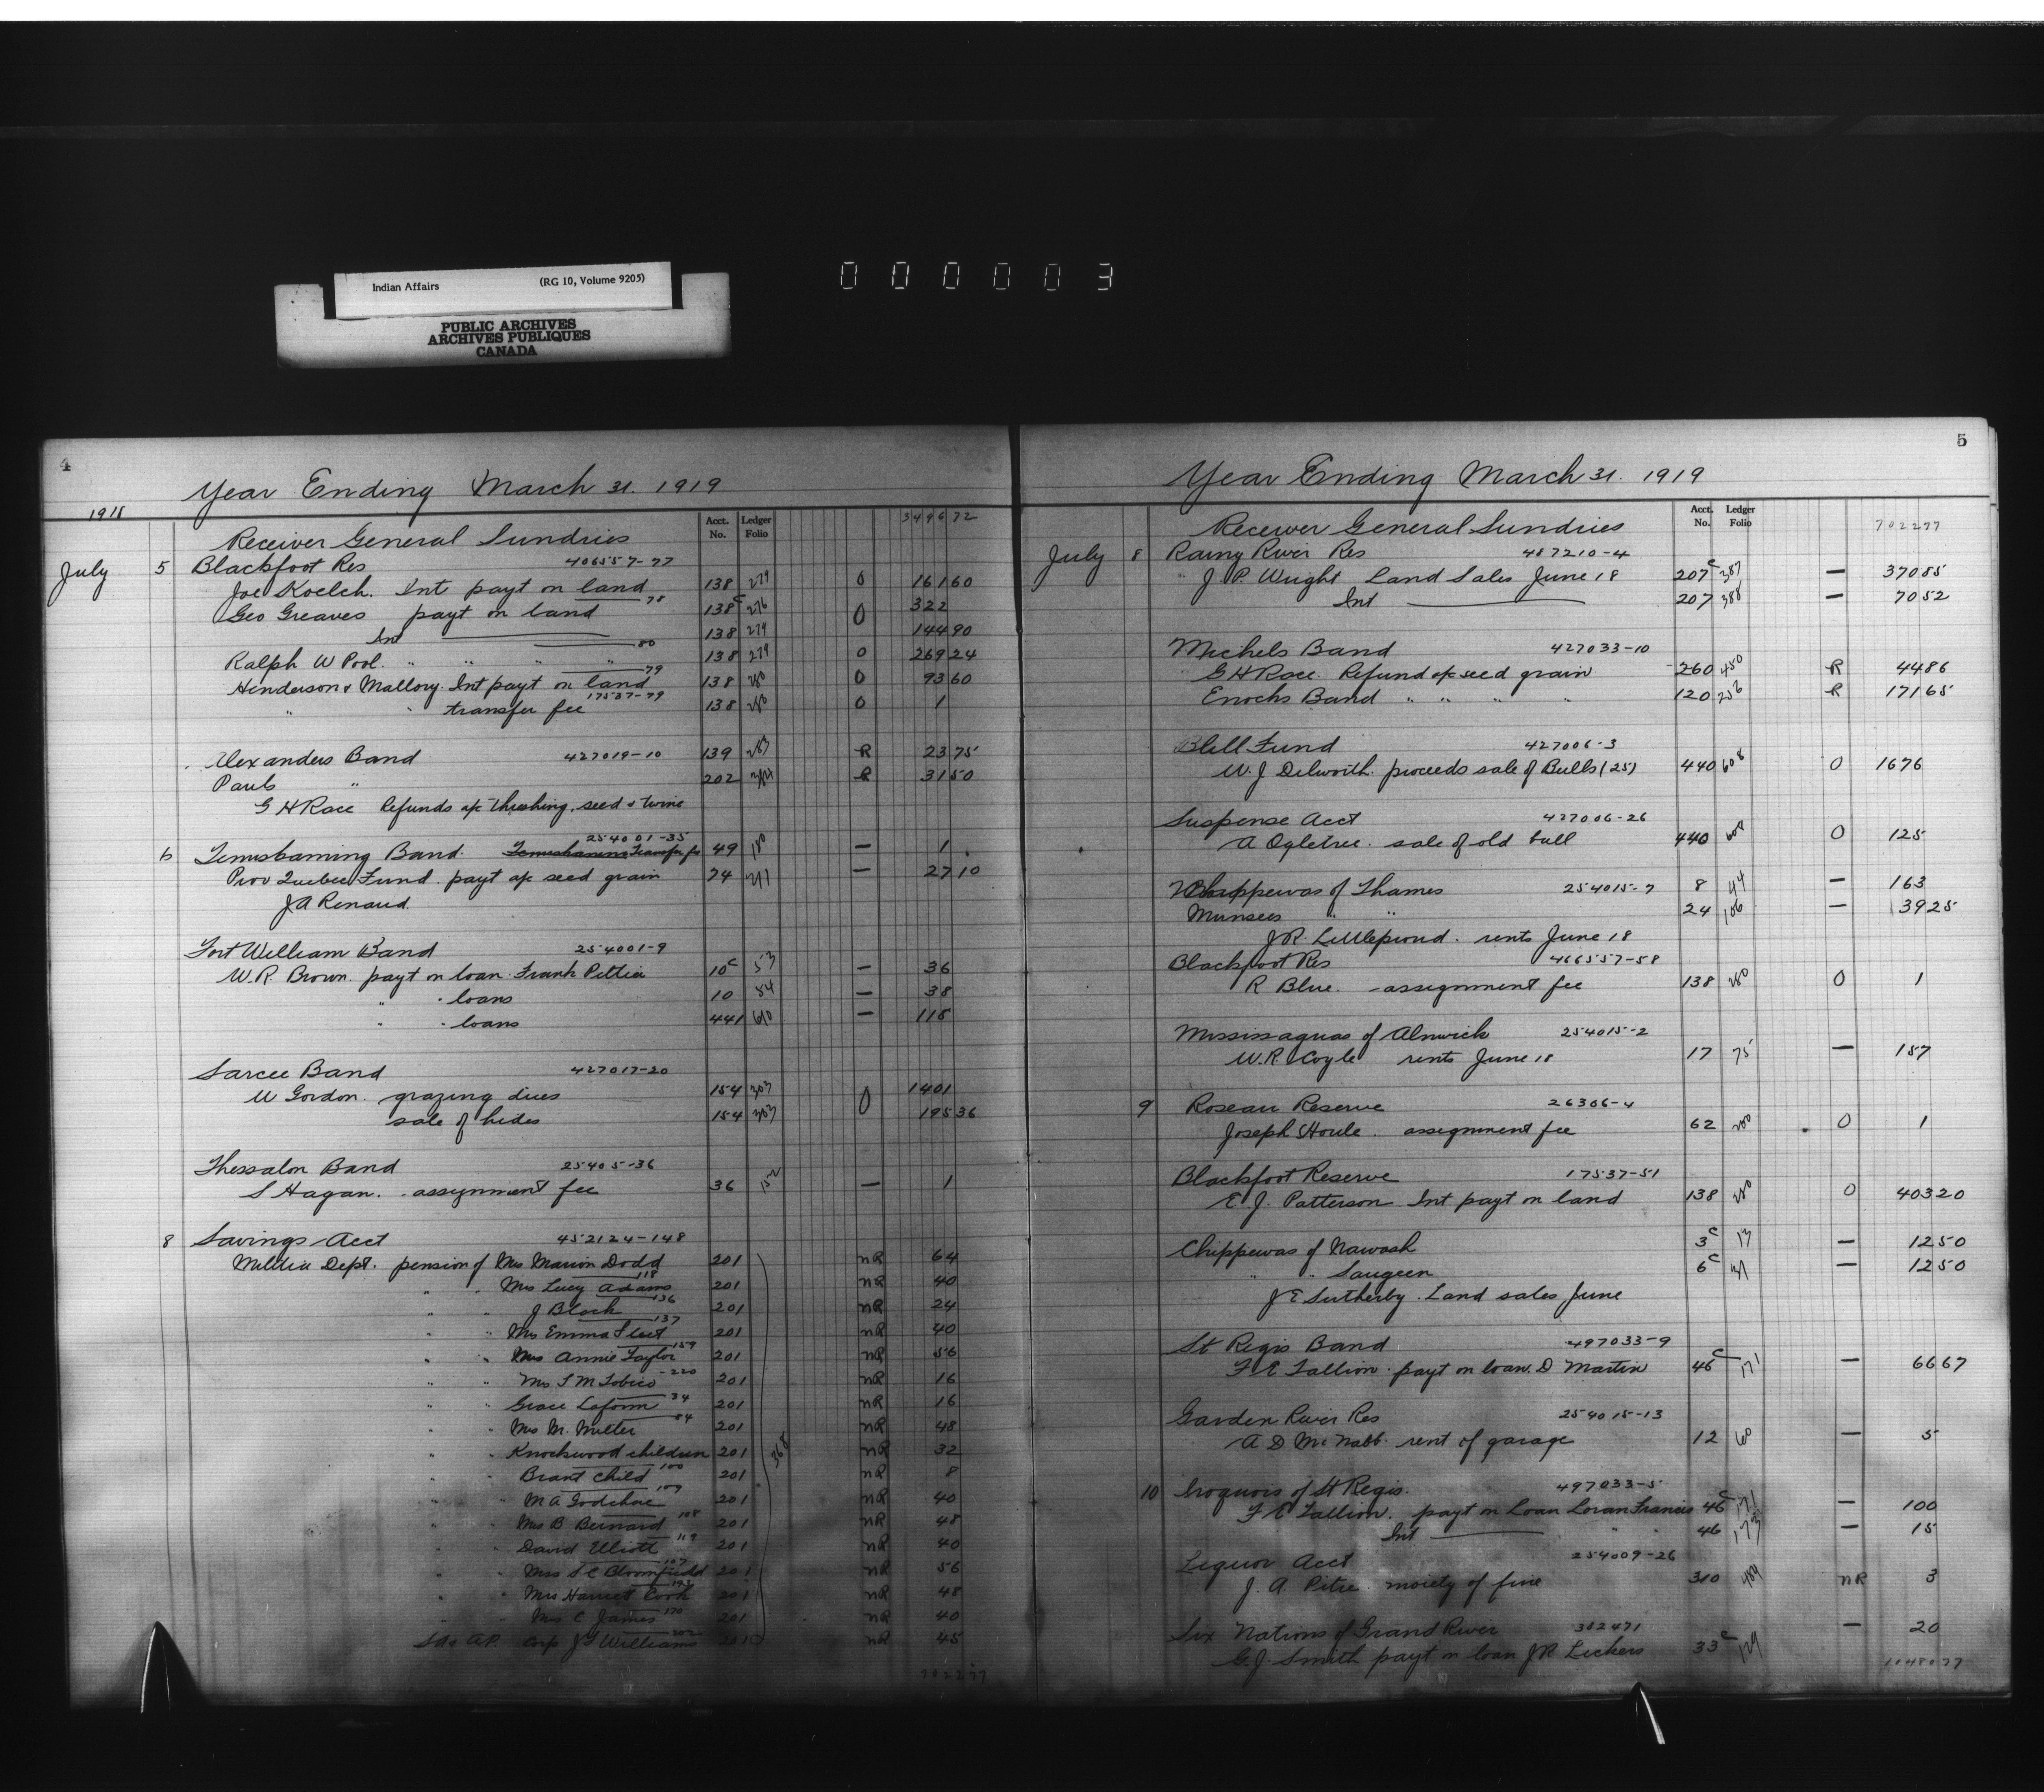 Indian Affairs (RG 10, Volume 9205)
PUBLIC ARCHIVES
ARCHIVES PUBLIQUES
CANADA
000003
4
Year Ending March 31. 1919
1918
Acct. No. Ledger Folio 3496 72
Receiver General Sundries
July 5 Blackfoot Res 406557-77
Joe Koelch. Int payt on land 138 279 0 161 60
78
Geo Greaves payt on land 138c 276 0 322
Int 138 279 144 90
80
Ralph W Pool " " " " 138 279 0 269 24
79
Henderson & Mallory Int payt on land 138 280 0 93 60
17537-79
" " transfer fee 138 280 0 1
Alexanders Band 427019-10 139 283 R 23 75
Pauls " 202 R 31 50
G H Race Refunds a/c threshing, seed & twine
254001-35
6 Temiskaming Band. Transfer fee 49 180 — 1
Prov Quebec Fund payt a/c seed grain 74 211 — 27 10
J A Renaud
Fort William Band 254001-9
W.R. Brown. payt on loan Frank Pelltier 10c 53 — 36
" " loans 10 54 — 38
" " loans 441 610 — 118
Sarcee Band 427017-20
W Gordon. grazing dues 154 303 0 1401
sale of hides 154 303 195 36
Thessalon Band 25405-36
S Hagan. assignment fee 36 152 — 1
8 Savings Acct 452124-148
Militia Dept. pension of Mrs Marion Dodd 201 nR 64
118
" " Mrs Lucy Adams 201 nR 40
136
" " J Black 201 nR 24
137
" " Mrs Emma Fleet 201 nR 40
159
" " Mrs Annie Taylor 201 nR 56
" " Mrs S M Tobico -220 201 nR 16
" " Grace Laform 34 201 nR 16
84
" " Mrs M. Miller 201 nR 48
" " Knockwood children 201 368 nR 32
" " Brant child 100 201 nR 8
109
" " M A Godchere 201 nR 40
" " Mrs B Bernard 108 201 nR 48
" " David Elliott 119 201 nR 40
107
" " Mrs S C Bloomfield 201 nR 56
193
" " Mrs Harriet Cook 201 nR 48
" " Mrs C James 170 201 nR 40
202
S A & A.P. Corp J F Williams 201 nR 45
7022 77
5
Year Ending March 31. 1919
Acct. No. Ledger Folio 7022 77
Receiver General Sundries
July 8 Rainy River Res 487210-4
J. P. Wright Land Sales June 18 207c 387 — 370 85
Int 207 388 — 70 52
Michels Band 427033-10
G H Race Refund a/c seed grain 260 450 R 44 86
Enochs Band " " " " 120 252 R 171 65
Blell Fund 427006-3
W. J. Dilworth. proceeds sale of Bulls (25) 440 608 0 1676
Suspense Acct 427006-26
A Ogletree. sale of old bull 440 608 0 125
Chippewas of Thames 254015-7 8 44 — 163
Munsees " " 24 106 — 39 25
J R. Littleproud. rents June 18
Blackfoot Res 466557-58
R Blue. assignment fee 138 280 0 1
Mississaguas of Alnwick 254015-2
W. R. Coyle rents June 18 17 75 — 157
9 Roseau Reserve 26306-4
Joseph Houle. assignment fee 62 200 0 1
Blackfoot Reserve 17537-51
E. J. Patterson Int payt on land 138 280 0 403 20
Chippewas of Nawash 3c 17 — 12 50
" " Saugeen 6c 31 — 12 50
J E Sutherby. Land sales June
St Regis Band 497033-9
F E Tallion. payt on loan. D Martin 46c 171 — 66 67
Garden River Res 254015-13
A D McNabb. rent of garage 12 60 — 5
10 Iroquois of St Regis. 497033-5
F E Tallion. payt on Loan Loran Francis 46c 171 — 100
Int " " 46 173 — 15
Liquor Acct 254009-26
J. A. Pitre. moiety of fine 310 489 nR 3
Six Nations of Grand River 382471 — 20
G. J. Smith payt on loan J R Lickers 33c 129
10480 77